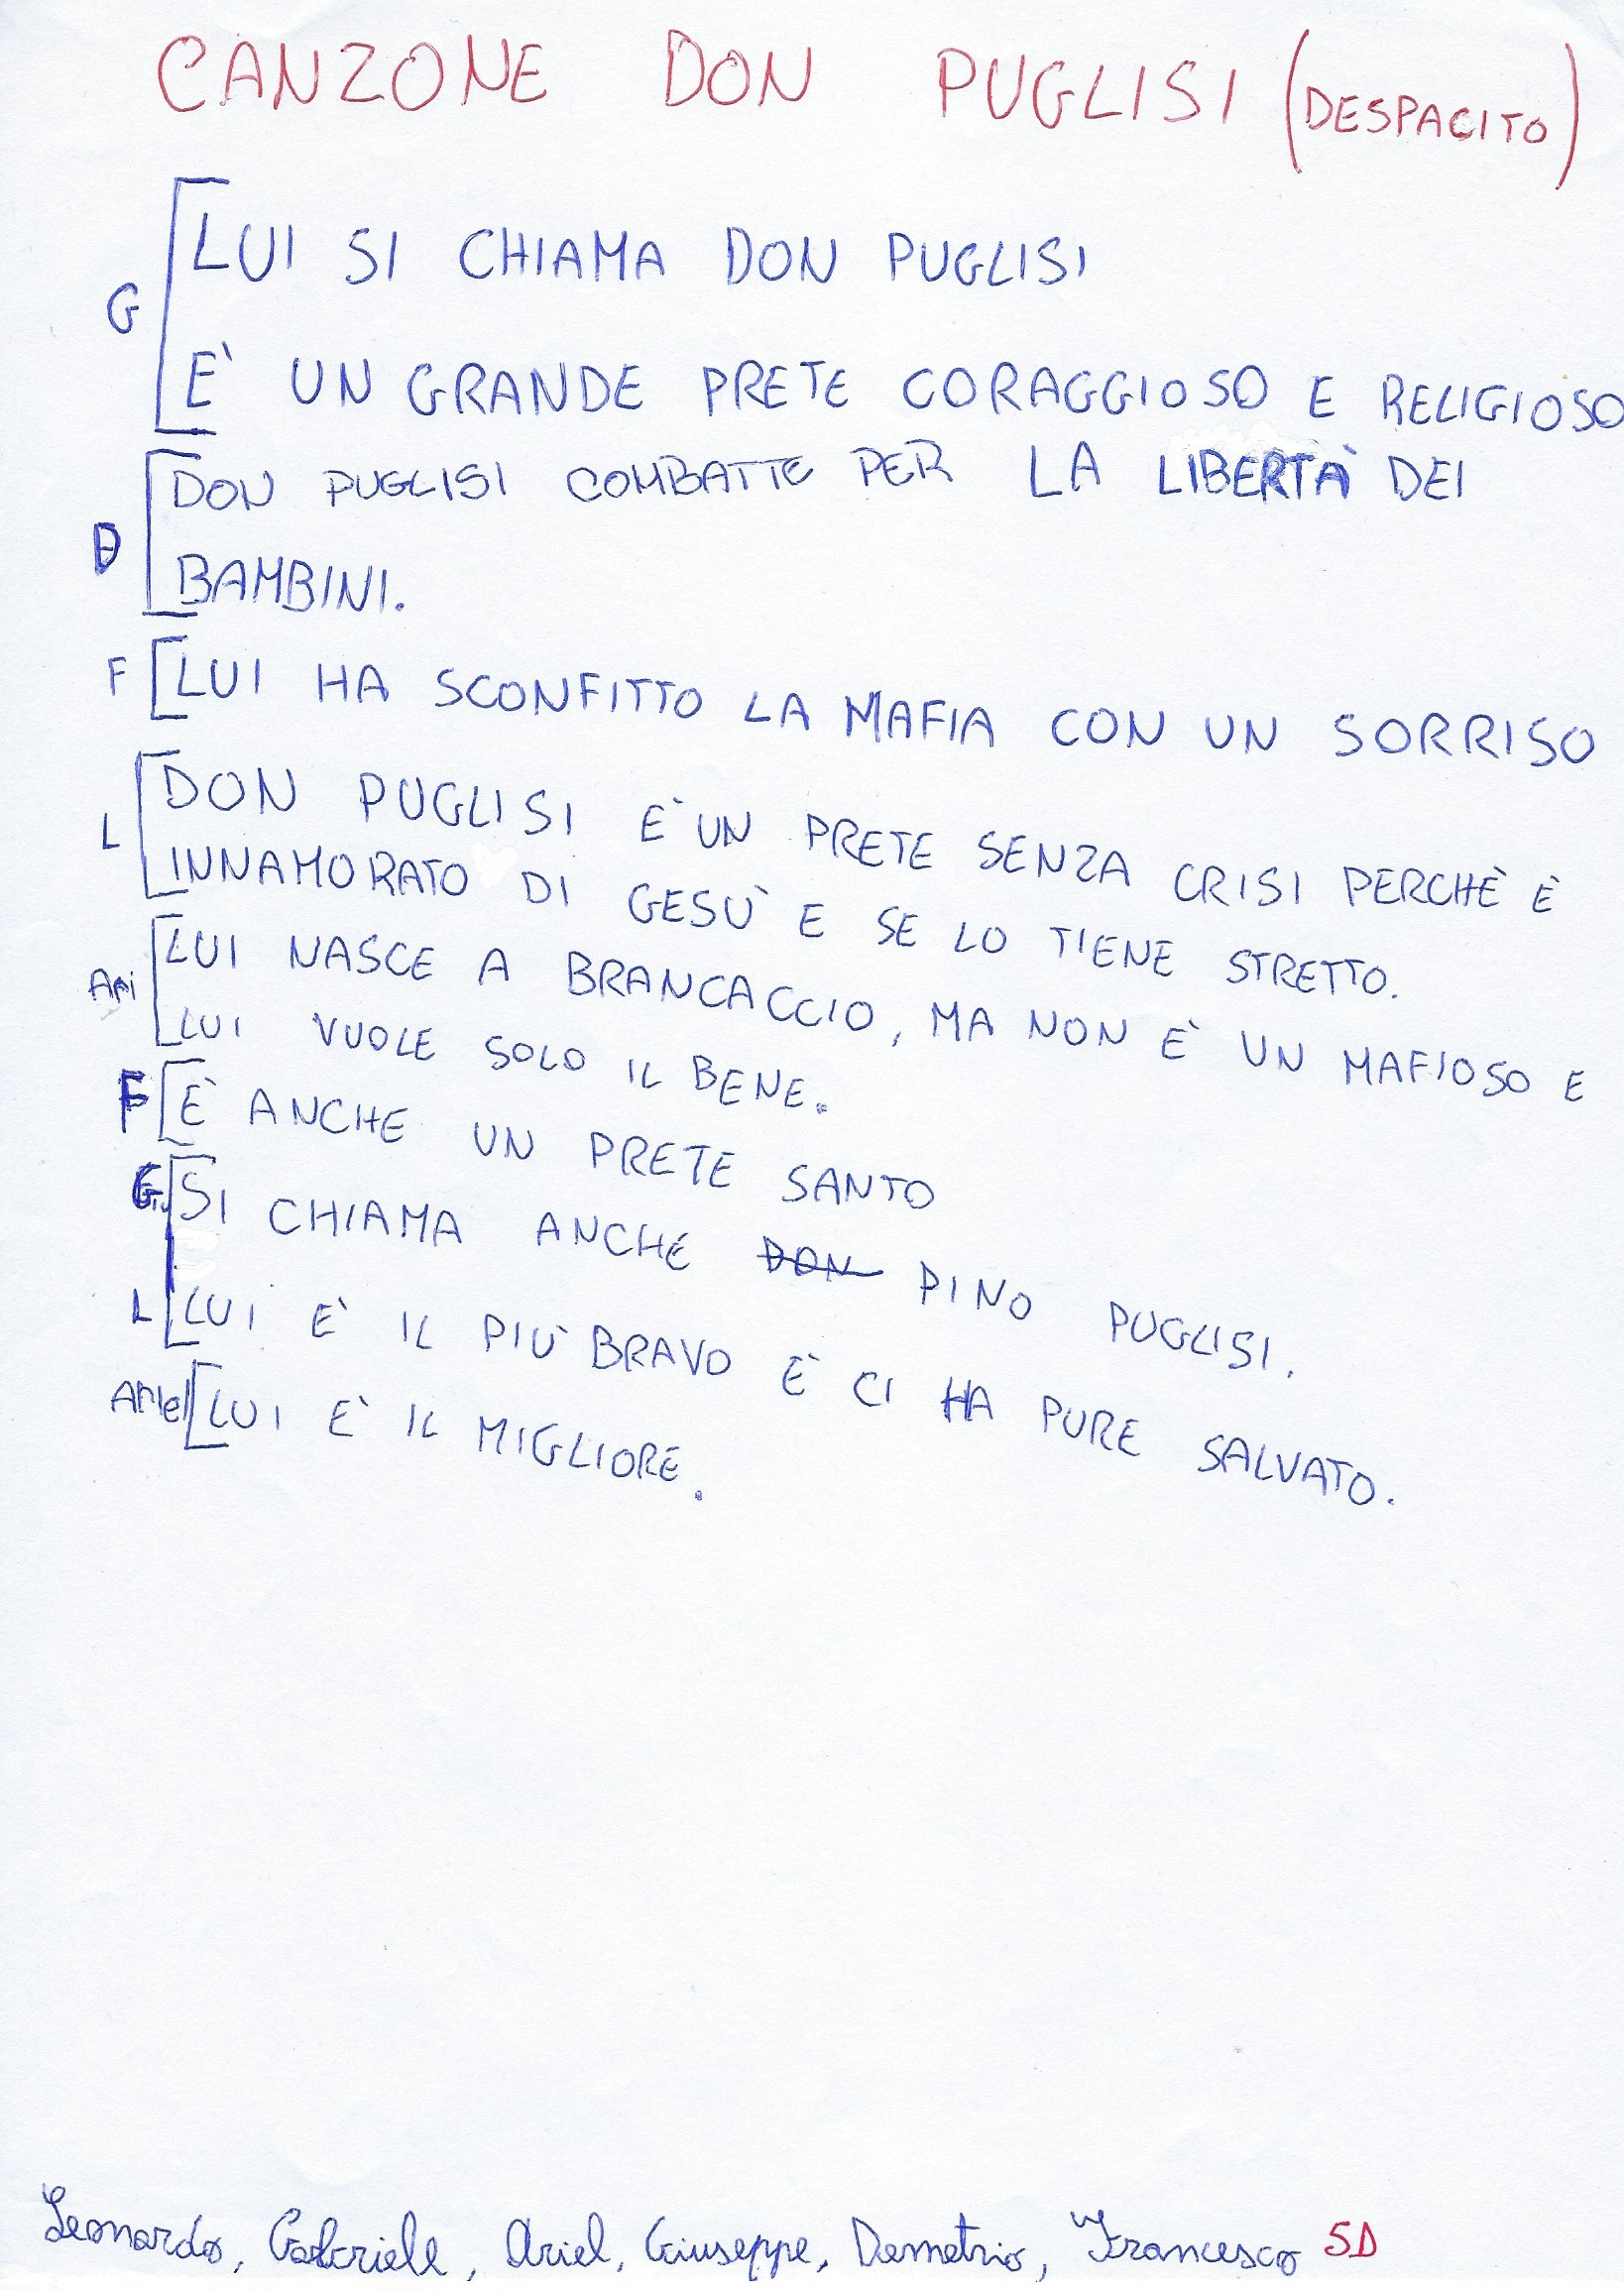 CANZONE DON PUGLISI (DESPACITO)
G [LUI SI CHIAMA DON PUGLISI
È UN GRANDE PRETE CORAGGIOSO E RELIGIOSO
D [DON PUGLISI COMBATTE PER LA LIBERTÀ DEI
BAMBINI.
F [LUI HA SCONFITTO LA MAFIA CON UN SORRISO
L [DON PUGLISI È UN PRETE SENZA CRISI PERCHÈ È
INNAMORATO DI GESÙ E SE LO TIENE STRETTO.
Ari [LUI NASCE A BRANCACCIO, MA NON È UN MAFIOSO E
LUI VUOLE SOLO IL BENE.
F [È ANCHE UN PRETE SANTO
Gi [SI CHIAMA ANCHE DON PINO PUGLISI.
L [LUI È IL PIÙ BRAVO E CI HA PURE SALVATO.
Ariel [LUI È IL MIGLIORE.
Leonardo, Gabriele, Ariel, Giuseppe, Demetrio, Francesco 5D